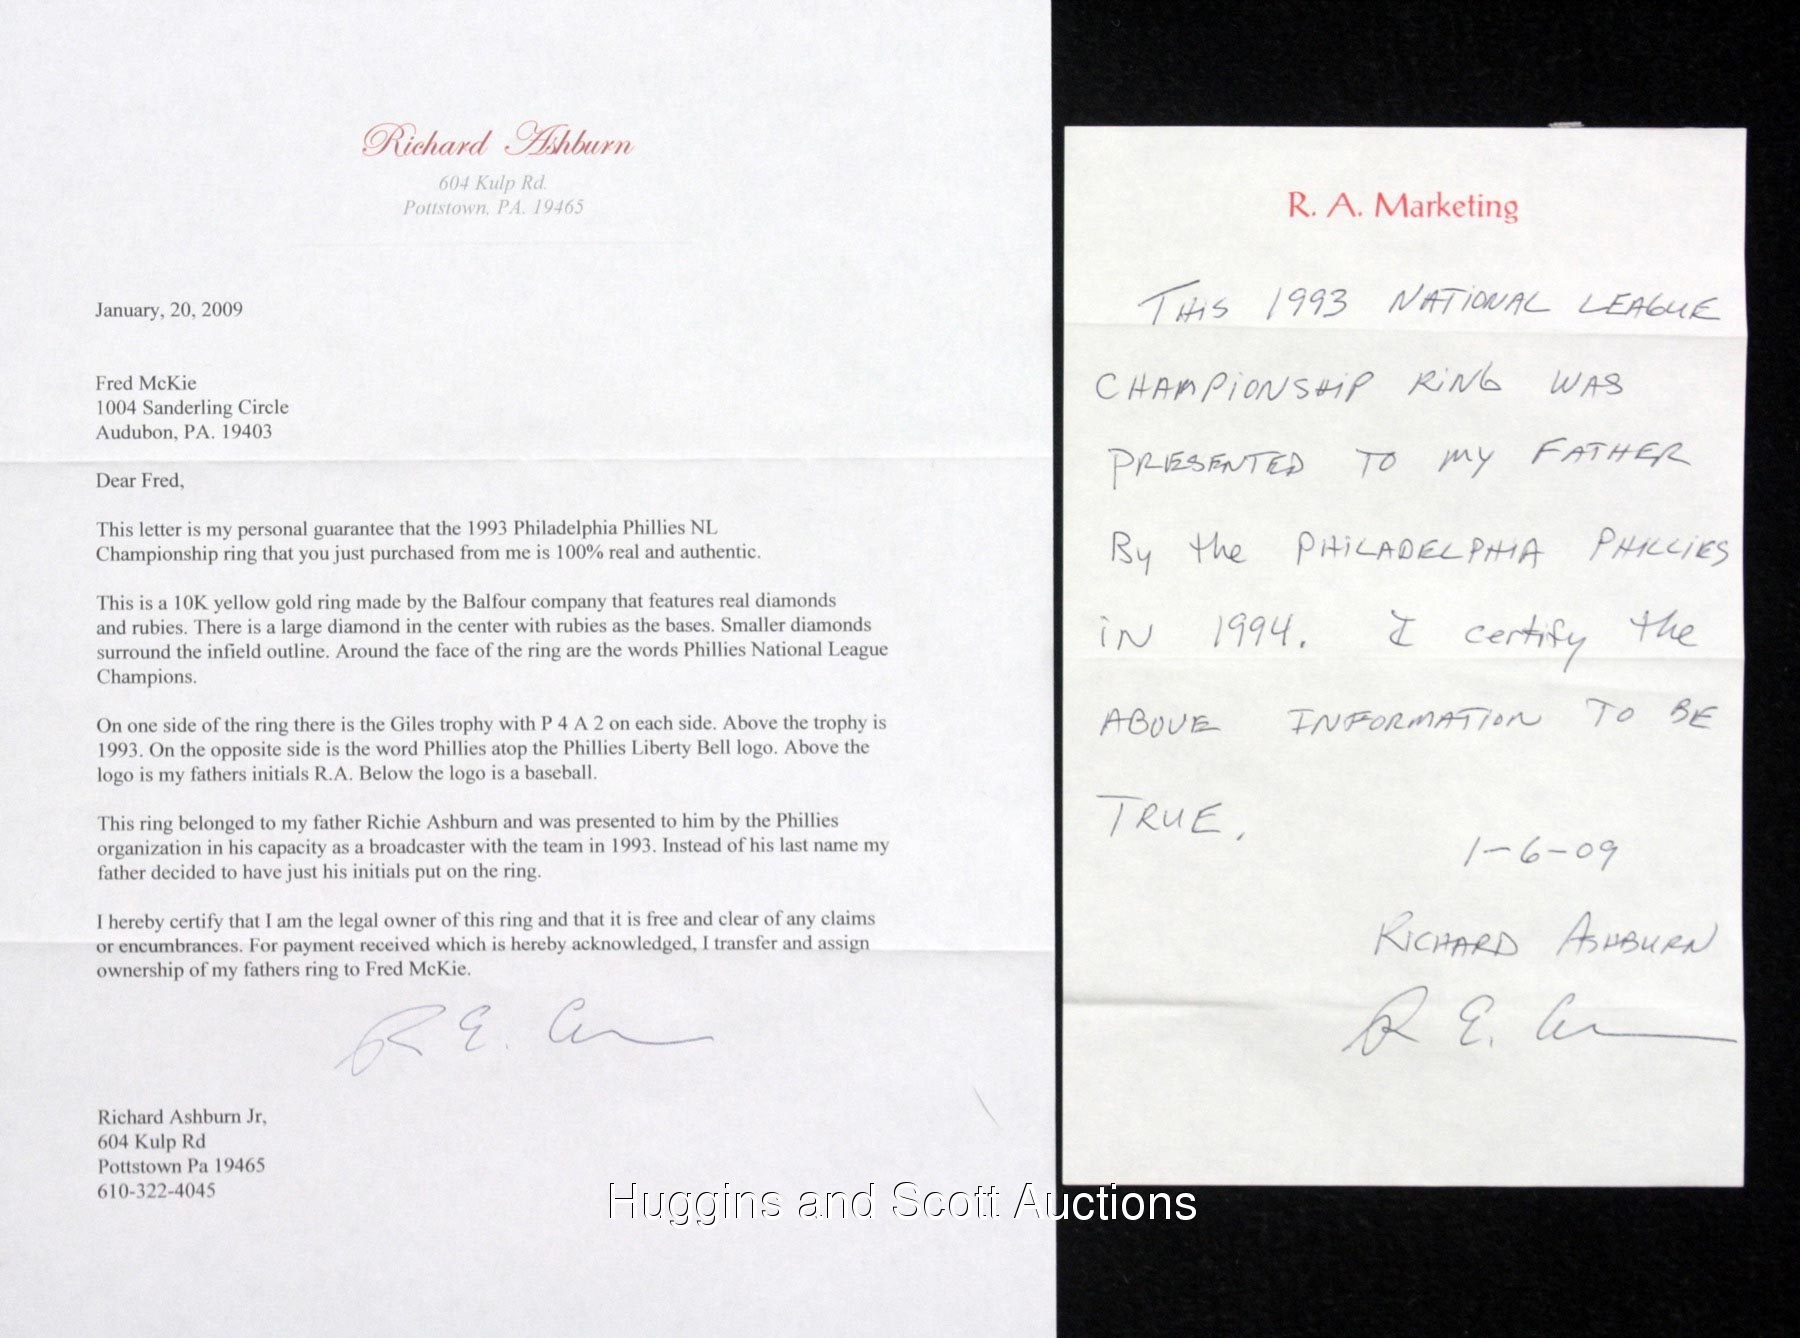 Richard Ashburn
604 Kulp Rd.
Pottstown, PA. 19465
January, 20, 2009
Fred McKie
1004 Sanderling Circle
Audubon, PA. 19403
Dear Fred,
This letter is my personal guarantee that the 1993 Philadelphia Phillies NL
Championship ring that you just purchased from me is 100% real and authentic.
This is a 10K yellow gold ring made by the Balfour company that features real diamonds
and rubies. There is a large diamond in the center with rubies as the bases. Smaller diamonds
surround the infield outline. Around the face of the ring are the words Phillies National League
Champions.
On one side of the ring there is the Giles trophy with P 4 A 2 on each side. Above the trophy is
1993. On the opposite side is the word Phillies atop the Phillies Liberty Bell logo. Above the
logo is my fathers initials R.A. Below the logo is a baseball.
This ring belonged to my father Richie Ashburn and was presented to him by the Phillies
organization in his capacity as a broadcaster with the team in 1993. Instead of his last name my
father decided to have just his initials put on the ring.
I hereby certify that I am the legal owner of this ring and that it is free and clear of any claims
or encumbrances. For payment received which is hereby acknowledged, I transfer and assign
ownership of my fathers ring to Fred McKie.
R E.
Richard Ashburn Jr,
604 Kulp Rd
Pottstown Pa 19465
610-322-4045
R. A. Marketing
THIS 1993 NATIONAL LEAGUE
CHAMPIONSHIP RING WAS
PRESENTED TO MY FATHER
By the PHILADELPHIA PHILLIES
IN 1994. I certify the
ABOVE INFORMATION TO BE
TRUE.
1-6-09
RICHARD ASHBURN
R E.
Huggins and Scott Auctions